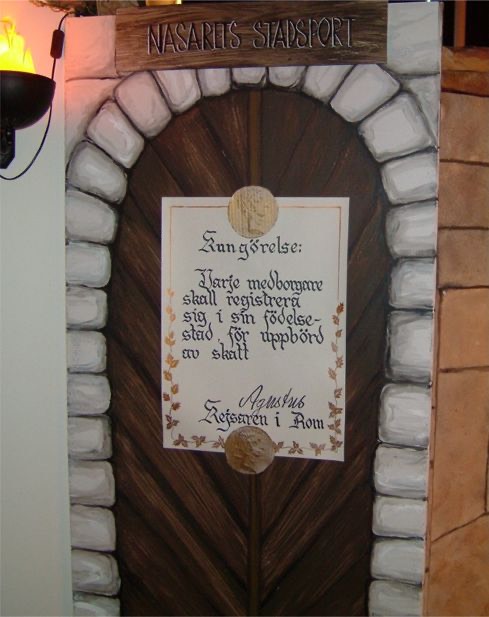 NASARETS STADSPORT
Kungörelse:
Varje medborgare
skall registrera
sig i sin födelse-
stad, för uppbörd
av skatt
Agustus
Kejsaren i Rom